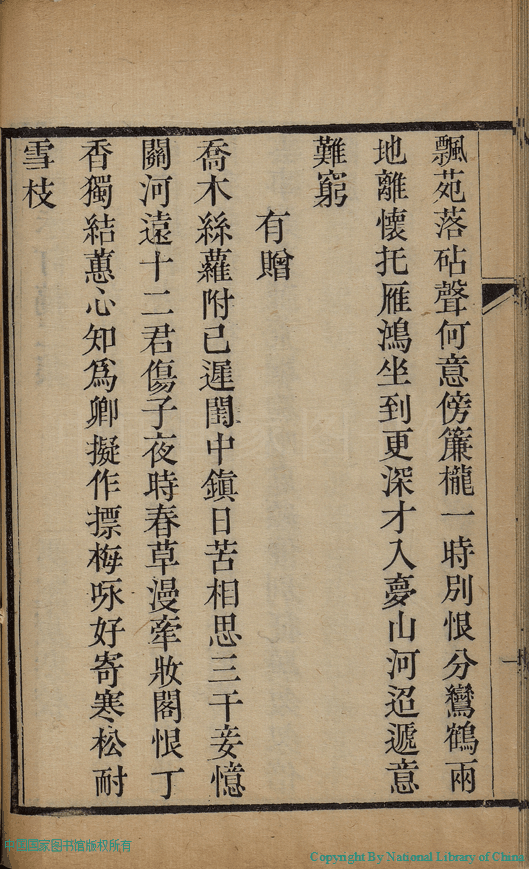 飄苑落砧聲何意傍簾櫳一時別恨分鸞鶴兩
地離懷托雁鴻坐到更深才入夢山河迢遞意
難窮
有贈
喬木絲蘿附己遲閨中鎮日苦相思三千妾憶
關河遠十二君傷子夜時春草漫牽妝閣恨丁
香獨結蕙心知爲卿擬作摽梅咏好寄寒松耐
雪枝
中国国家图书馆版权所有
Copyright By National Library of China